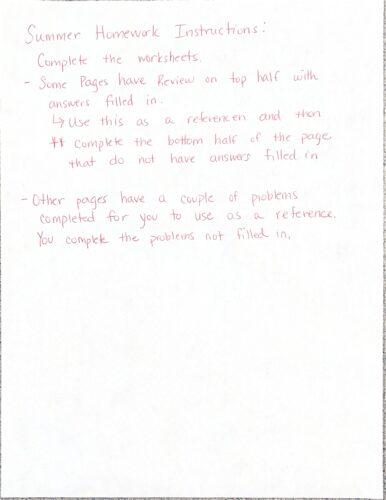 Summer Homework Instructions:
Complete the worksheets.
- Some Pages have Review on top half with
answers filled in.
↳ Use this as a referencen and then
** Complete the bottom half of the page
that do not have answers filled in
- Other pages have a couple of problems
completed for you to use as a reference.
You complete the problems not filled in.